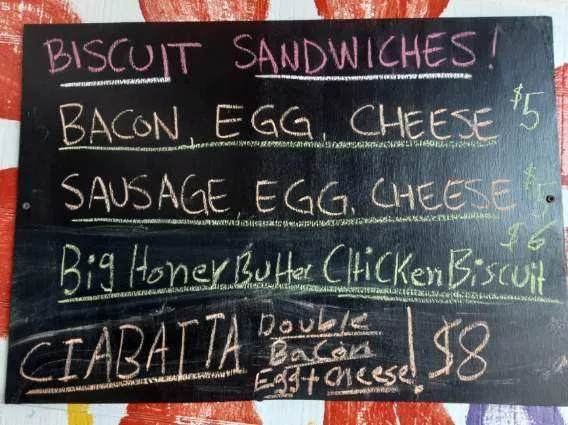 BISCUIT SANDWICHES!
BACON, EGG, CHEESE $5
SAUSAGE, EGG, CHEESE $5
$6
Big Honey Butter CHicKen Biscuit
CIABATTA Double Bacon Egg + cheese! $8